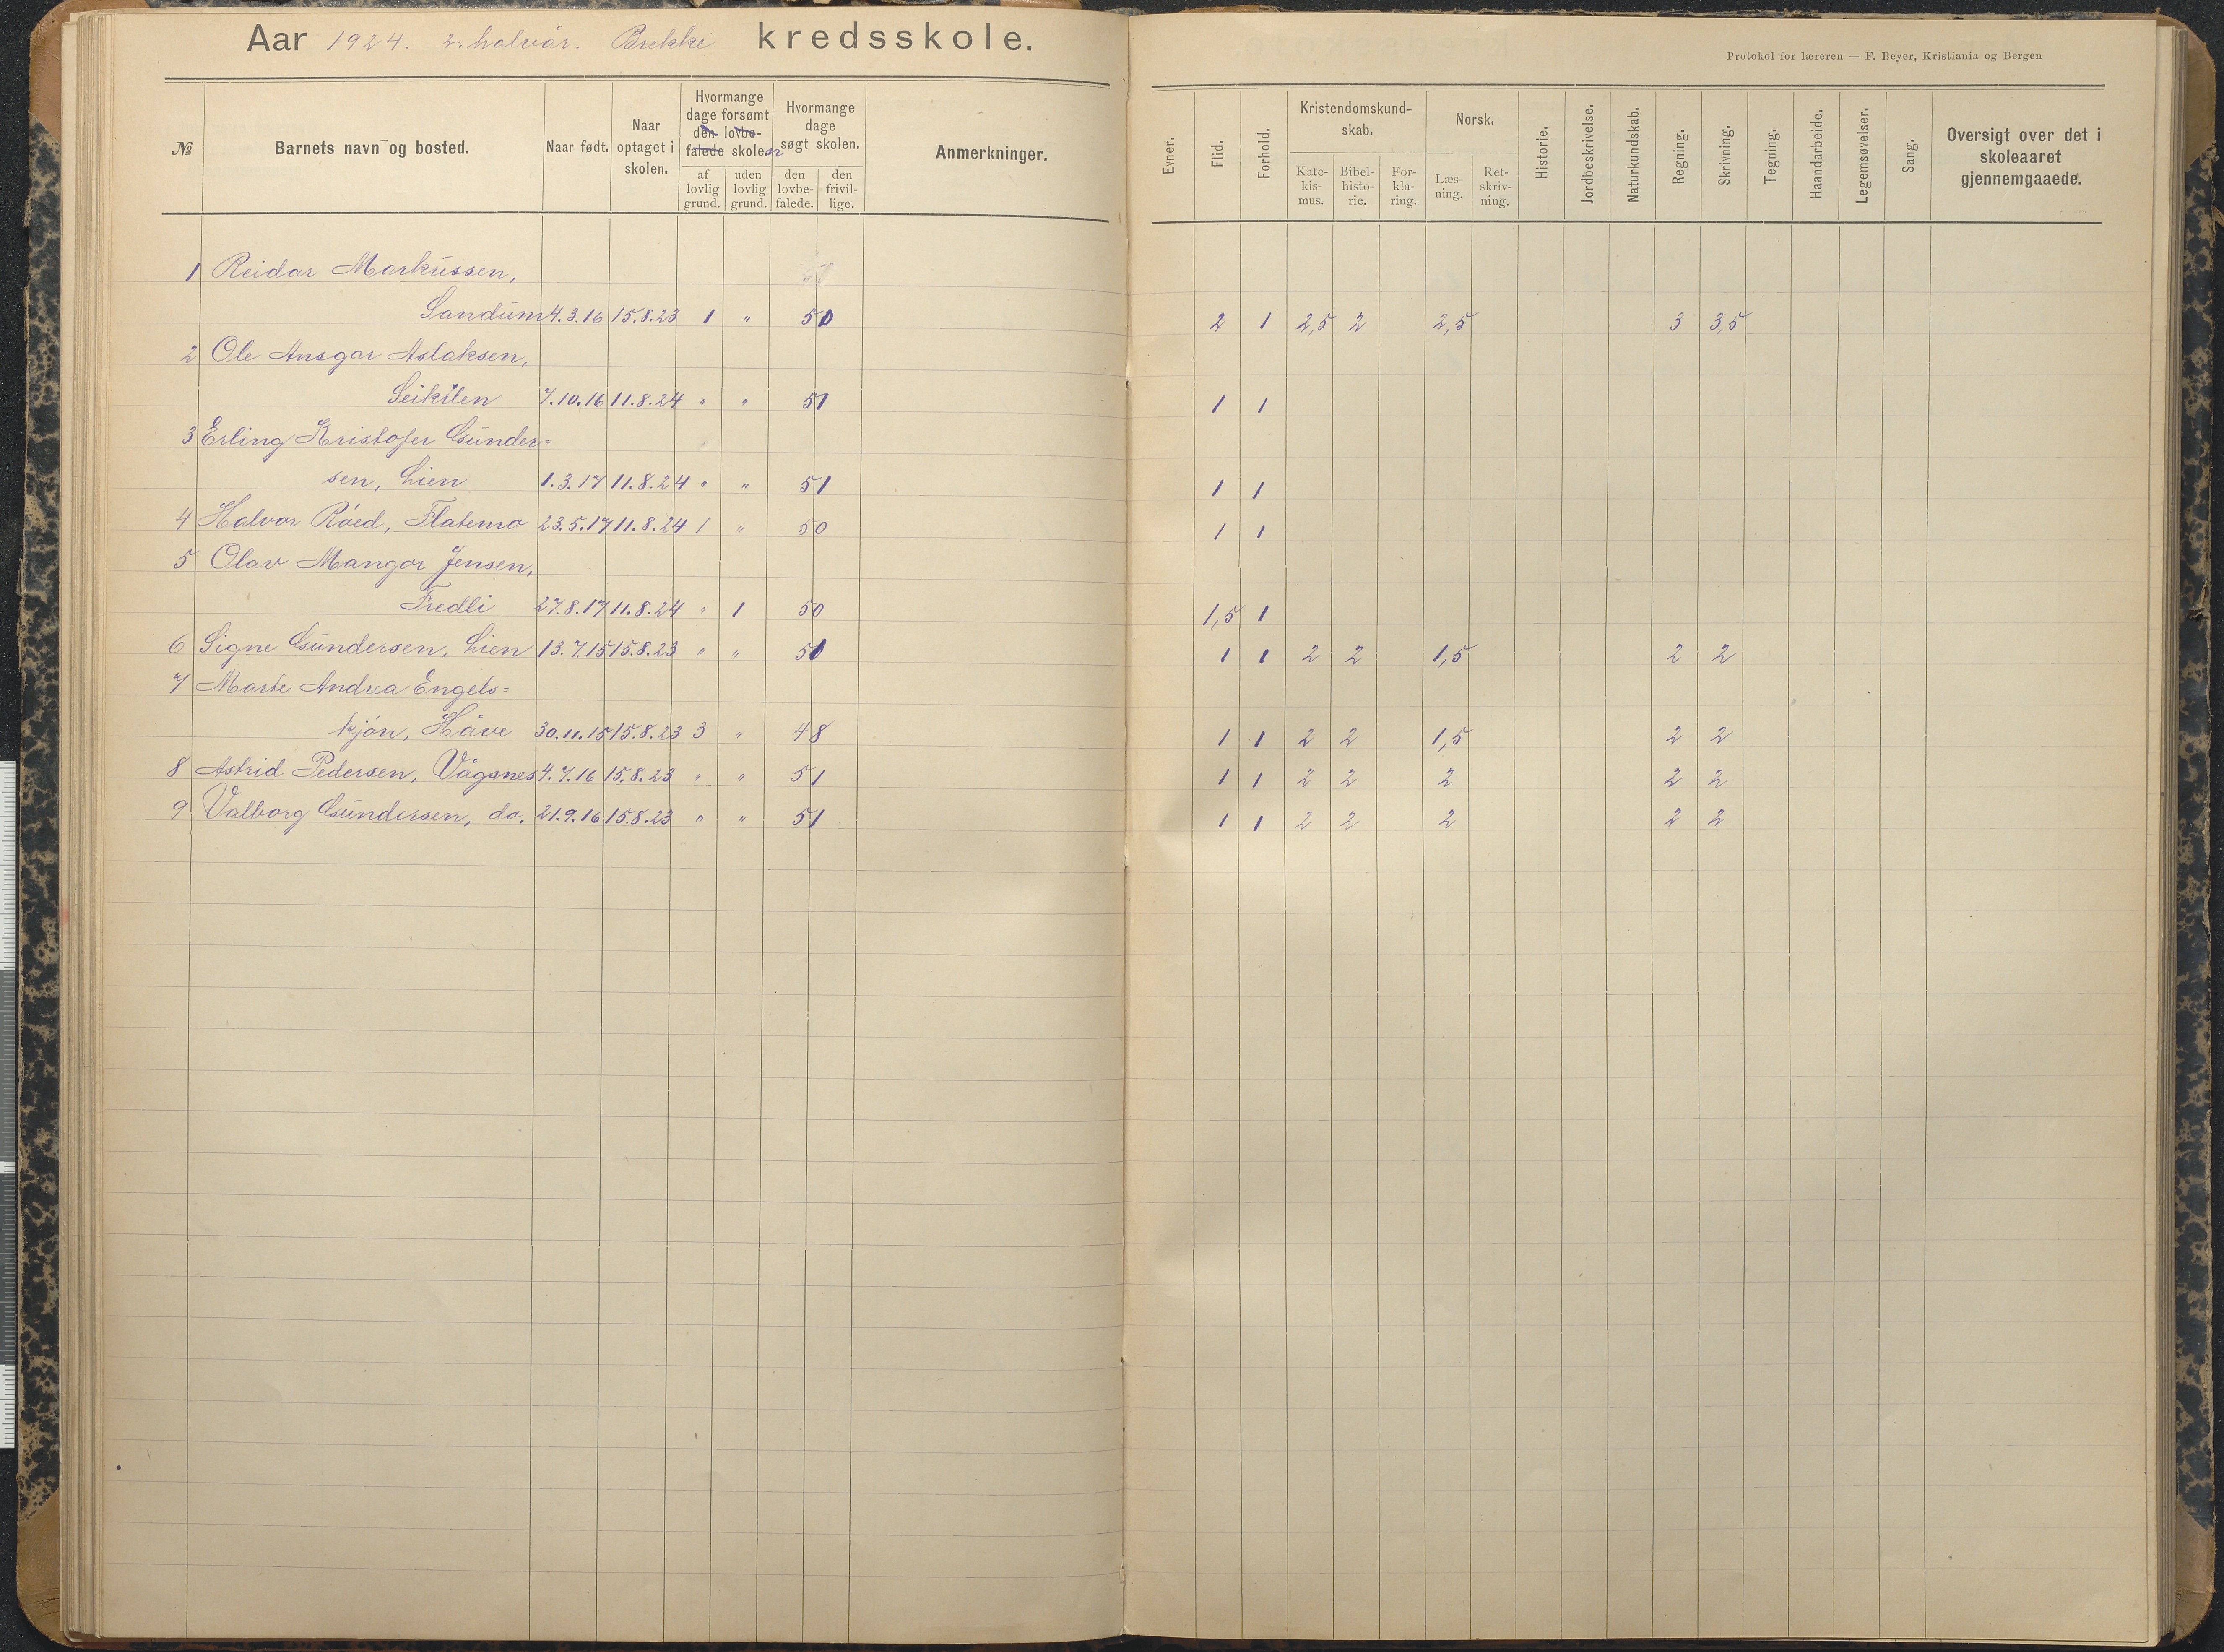 Aar 1924. 2. halvår. Brekke kredsskole.
Protokol for læreren — F. Beyer, Kristiania og Bergen
№ Barnets navn og bosted. Naar født. Naar optaget i skolen. Hvormange dage forsømt den lovbefalede skolen af lovlig grund. uden lovlig grund. Hvormange dage søgt skolen. den lovbefalede. den frivillige. Anmerkninger.
Evner. Flid. Forhold. Kristendomskundskab. Katekismus. Bibelhistorie. Forklaring. Norsk. Læsning. Retskrivning. Historie. Jordbeskrivelse. Naturkundskab. Regning. Skrivning. Tegning. Haandarbeide. Legemsøvelser. Sang. Oversigt over det i skoleaaret gjennemgaaede.
1 Reidar Markussen,
Sandum 4.3.16 15.8.23 1 " 50 2 1 2,5 2 2,5 3 3,5
2 Ole Ansgar Aslaksen,
7.10.16 11.8.24 " " 51 1 1
3 Erling Kristofer Gunder=
sen, Lien 1.3.17 11.8.24 " " 51 1 1
4 Halvor Röed, Flatemo 23.5.17 11.8.24 1 " 50 1 1
5 Olav Mangor Jensen,
Fredli 27.8.17 11.8.24 " 1 50 1,5 1
6 Signe Gundersen, Lien 13.7.15 15.8.23 " " 51 1 1 2 2 1,5 2 2
7 Marte Andrea Engels=
kjön, Håve 30.11.15 15.8.23 3 " 48 1 1 2 2 1,5 2 2
8 Astrid Pedersen, Vågsnes 4.7.16 15.8.23 " " 51 1 1 2 2 2 2 2
9 Valborg Gundersen, do. 21.9.16 15.8.23 " " 51 1 1 2 2 2 2 2